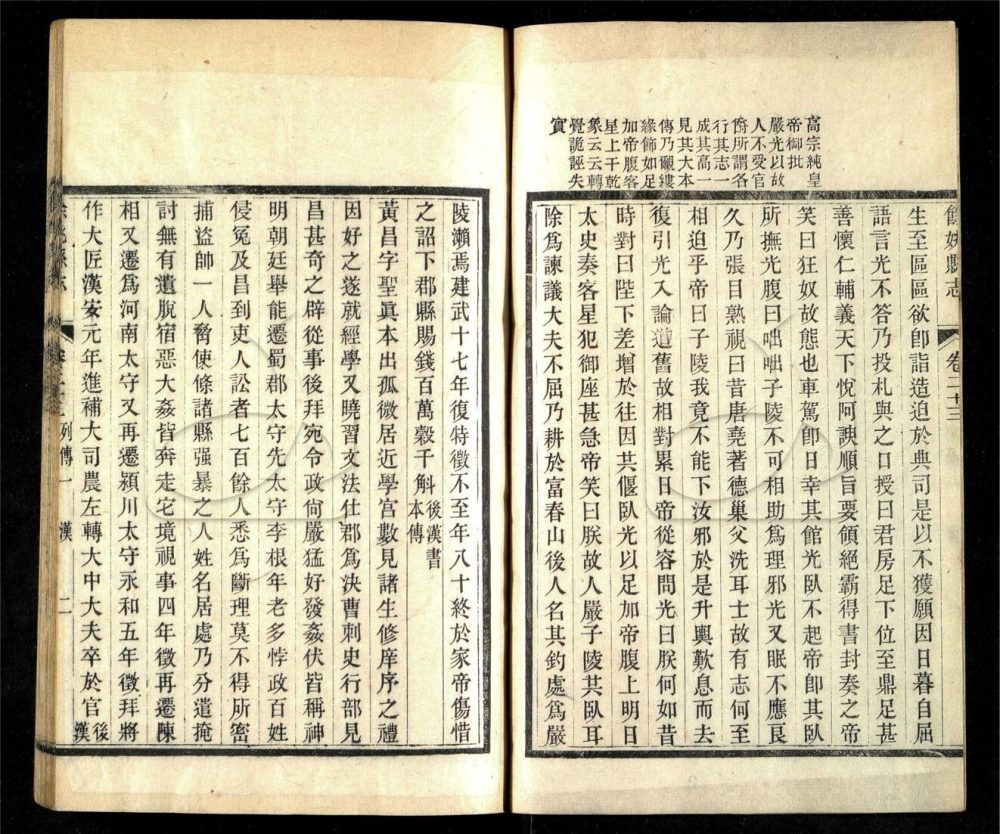 餘姚縣志
卷二十三
高宗純皇
帝御批
嚴光以故
人不受官
僞所謂各
行其志一
成其高一
見其大本
傳乃覼縷
緣飾如足
加帝腹客
星上干乾
象云云轉
覺詭誣失
實
生至區區欲卽詣造迫於典司是以不獲願因日暮自屈
語言光不答乃投札與之口授曰君房足下位至鼎足甚
善懷仁輔義天下悅阿諛順旨要領絕霸得書封奏之帝
笑曰狂奴故態也車駕卽日幸其館光臥不起帝卽其臥
所撫光腹曰咄咄子陵不可相助爲理邪光又眠不應良
久乃張目熟視曰昔唐堯著德巢父洗耳士故有志何至
相迫乎帝曰子陵我竟不能下汝邪於是升輿歎息而去
復引光入論道舊故相對累日帝從容問光曰朕何如昔
時對曰陛下差增於往因其偃臥光以足加帝腹上明日
太史奏客星犯御座甚急帝笑曰朕故人嚴子陵共臥耳
除爲諫議大夫不屈乃耕於富春山後人名其釣處爲嚴
陵瀨焉建武十七年復特徵不至年八十終於家帝傷惜
之詔下郡縣賜錢百萬穀千斛後漢書本傳
黃昌字聖眞本出孤微居近學宫數見諸生修庠序之禮
因好之遂就經學又曉習文法仕郡爲決曹刺史行部見
昌甚奇之辟從事後拜宛令政尙嚴猛好發姦伏皆稱神
明朝廷舉能遷蜀郡太守先太守李根年老多悖政百姓
侵冤及昌到吏人訟者七百餘人悉爲斷理莫不得所密
捕盜帥一人脅使條諸縣强暴之人姓名居處乃分遣掩
討無有遺脫宿惡大姦皆奔走它境視事四年徵再遷陳
相又遷爲河南太守又再遷潁川太守永和五年徵拜將
作大匠漢安元年進補大司農左轉大中大夫卒於官後漢
列傳一 漢 二